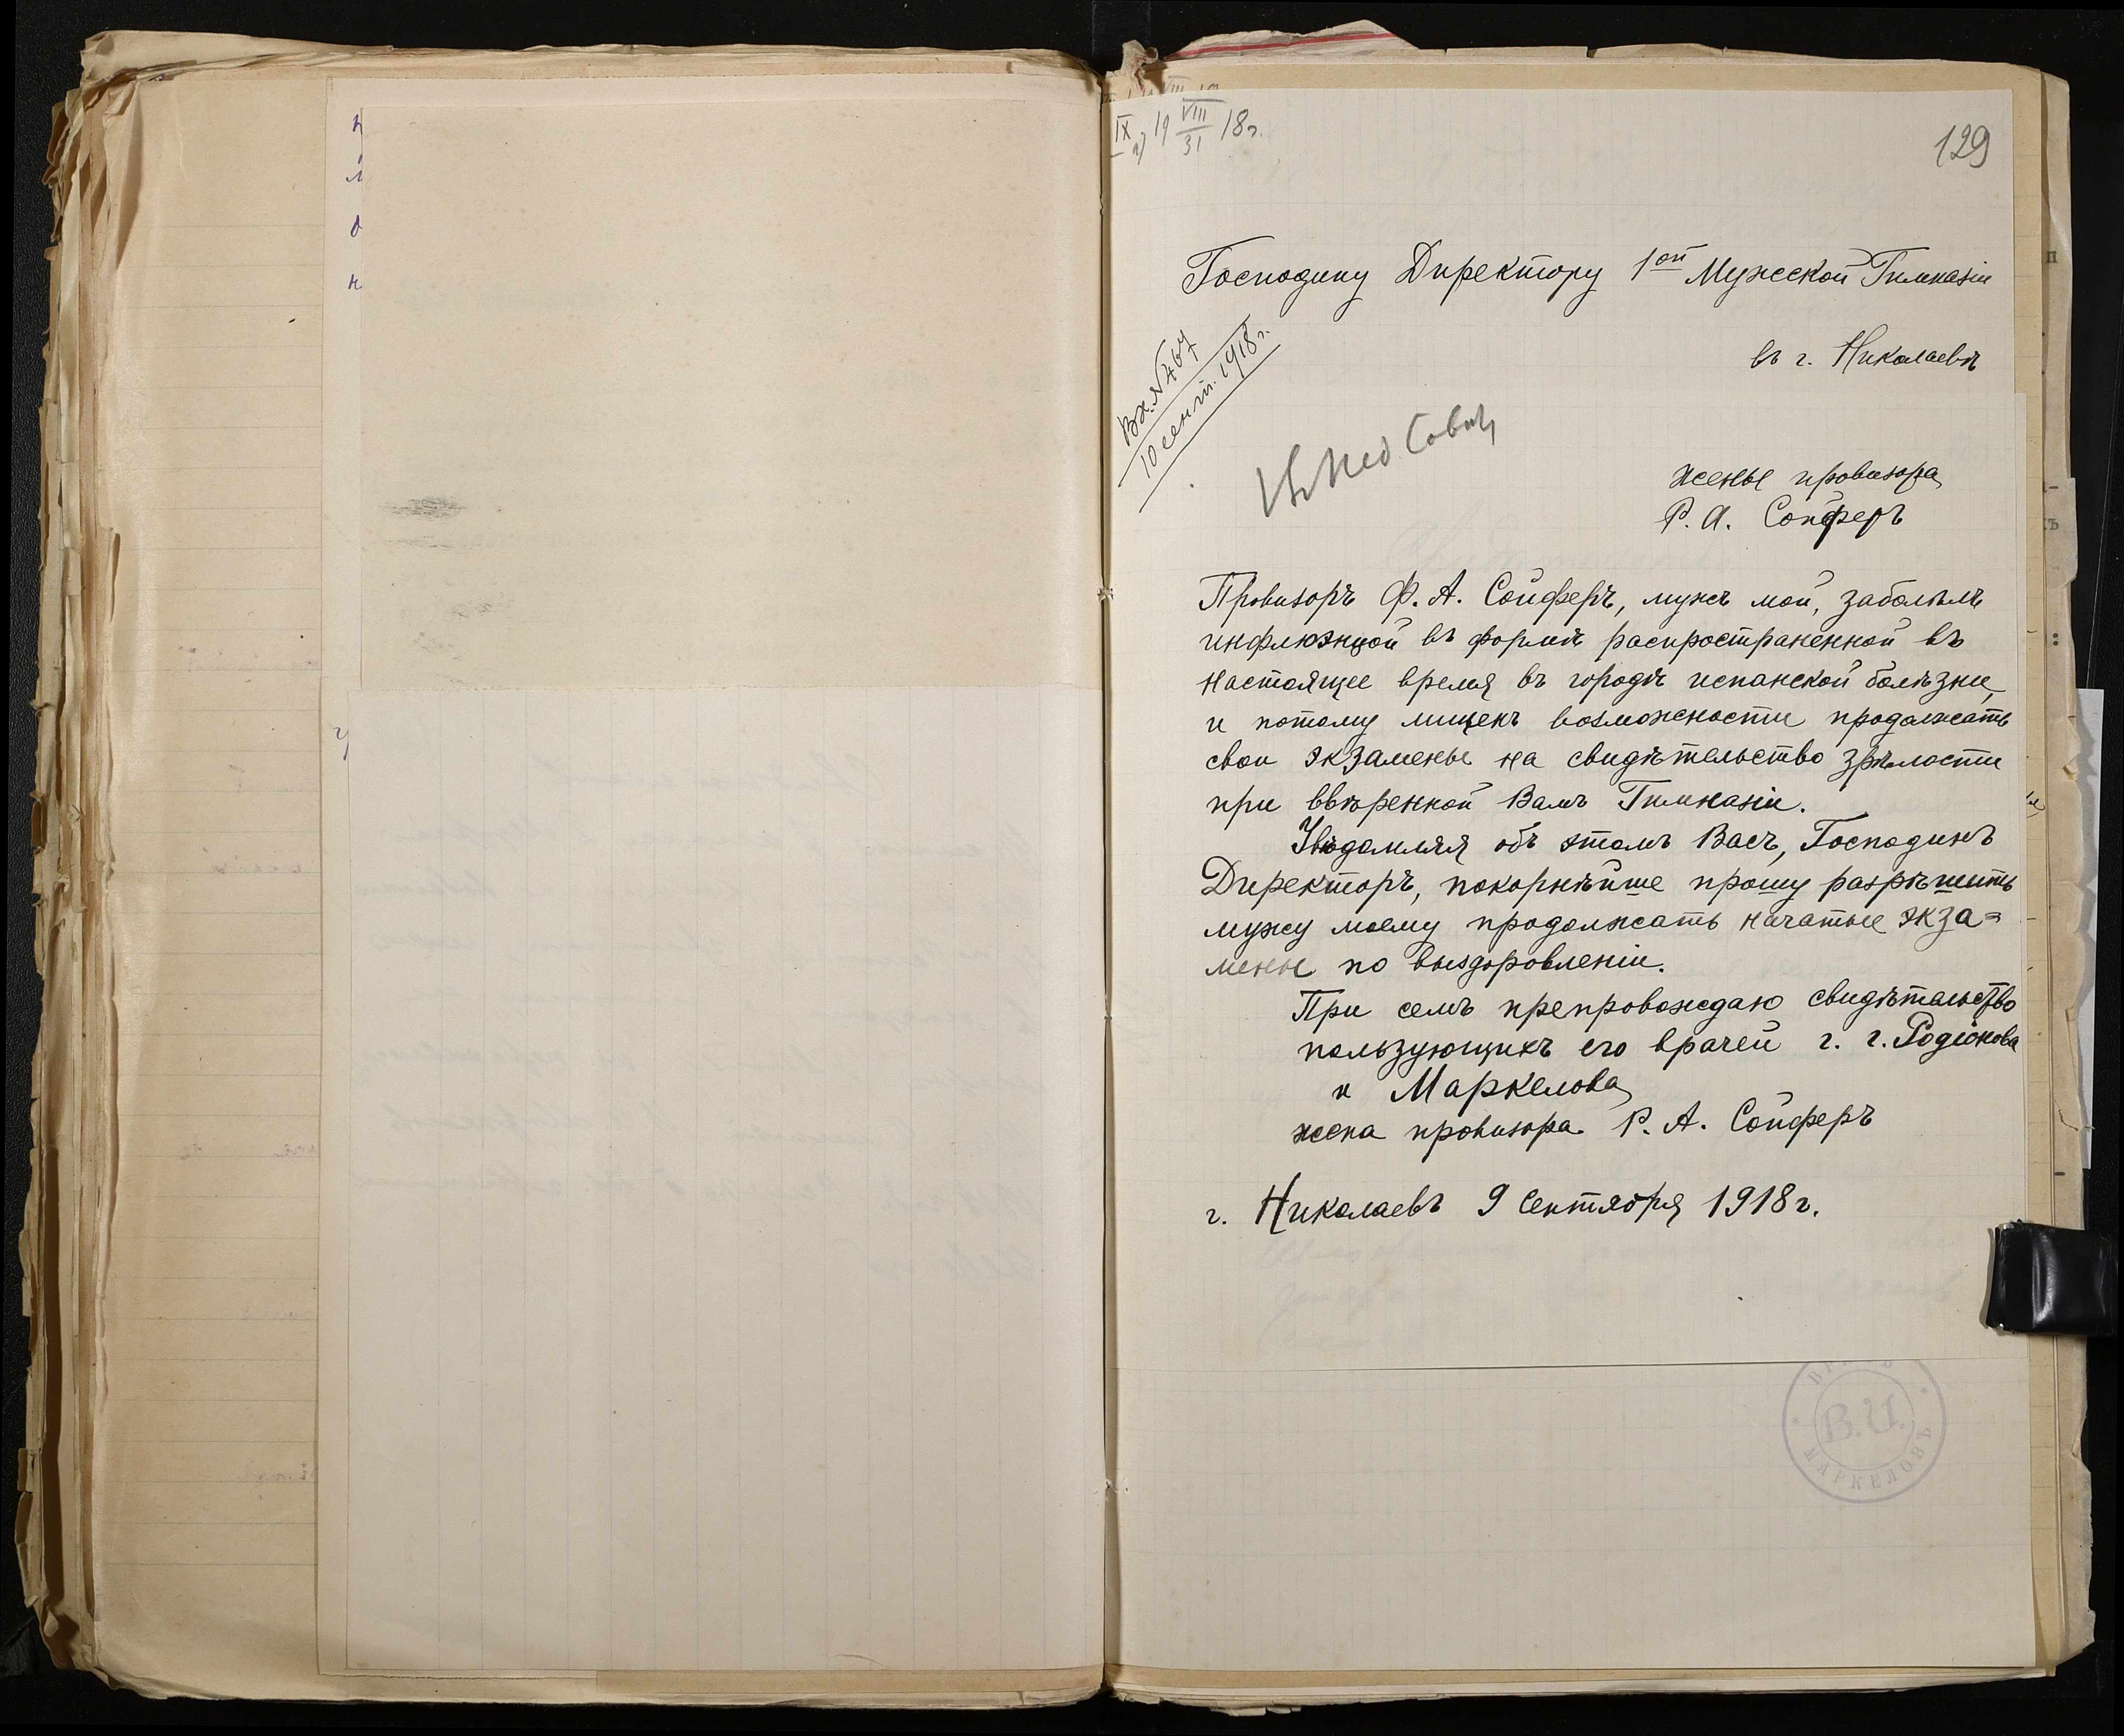 IX 19 VIII/31 18г.
129
Господину Директору 1ой Мужской Гимназіи
въ г. Николаевѣ
Вх. № 467
10 сент. 1918 г.
Въ Пед Совѣтъ
жены провизора
Р. А. Сойферъ
Провизоръ Ф. А. Сойферъ, мужъ мой, заболѣлъ
инфлюэнцой въ формѣ распространенной въ
настоящее время въ городѣ испанской болѣзни,
и потому лишенъ возможности продолжать
свои экзамены на свидѣтельство зрѣлости
при ввѣренной Вамъ Гимназіи.
Увѣдомляя объ этомъ Васъ, Господинъ
Директоръ, покорнѣйше прошу разрѣшить
мужу моему продолжать начатые экза=
мены по выздоровленіи.
При семъ препровождаю свидѣтельство
пользующихъ его врачей г. г. Родіонова
и Маркелова
жена провизора Р. А. Сойферъ
г. Николаевъ 9 Сентября 1918 г.
В.И.
МАРКЕЛОВЪ